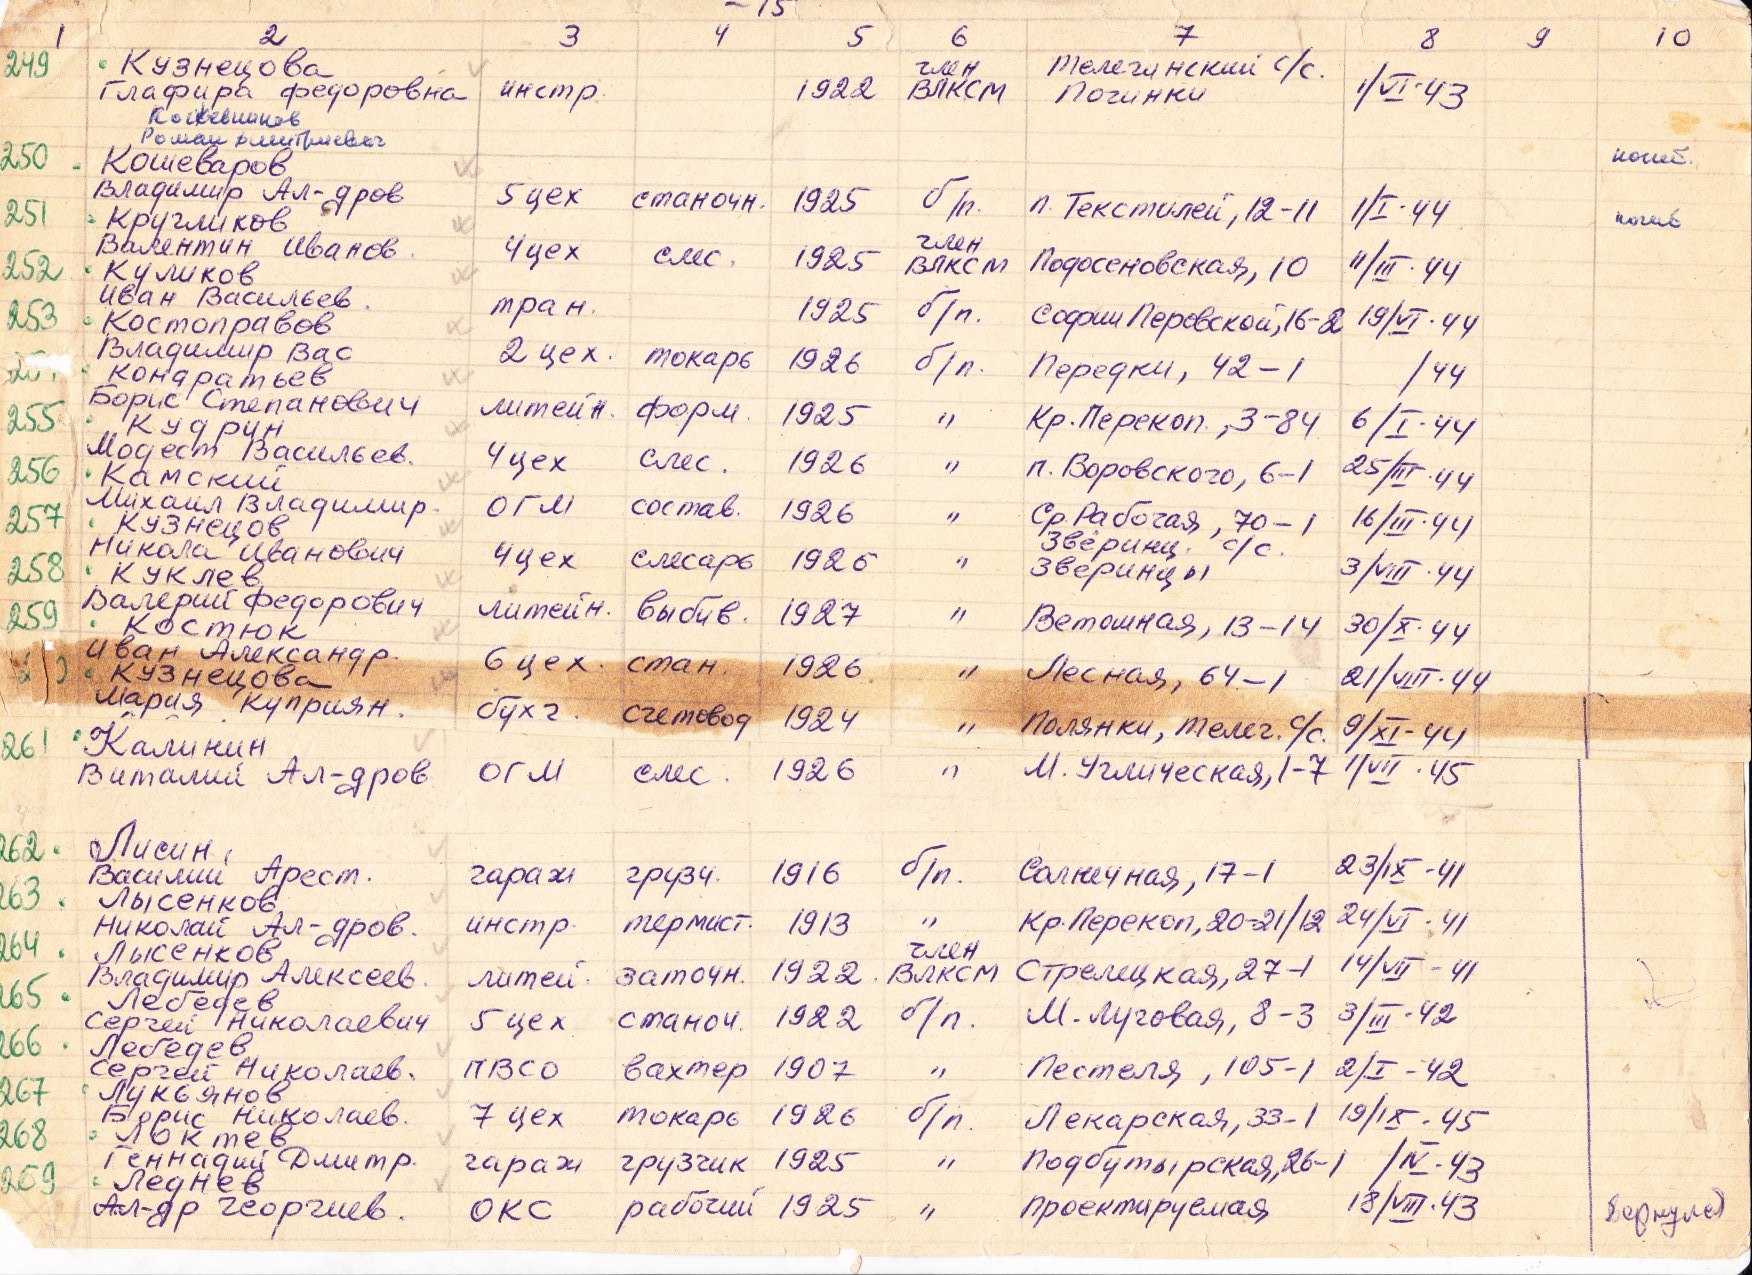 - 15
1 2 3 4 5 6 7 8 9 10
249 Кузнецова член Телегинский с/с.
Глафира Федоровна инстр. 1922 ВЛКСМ Починки 1/VI-43
Роман Дмитриевич
250 Кошеваров погиб.
Владимир Ал-дров 5 цех станочн. 1925 б/п. п. Текстилей, 12-11 1/I-44
251 Кругликов член погиб
Валентин Иванов. 4 цех слес. 1925 ВЛКСМ Подосеновская, 10 11/III-44
252 Куликов
Иван Васильев. тран. 1925 б/п. Софии Перовской, 16-2 19/VI-44
253 Костоправов
Владимир Вас 2 цех. токарь 1926 б/п. Передки, 42-1 /44
Кондратьев
Борис Степанович литейн. форм. 1925 " Кр. Перекоп., 3-84 6/I-44
255 Кудрин
Модест Васильев. 4 цех слес. 1926 " п. Воровского, 6-1 25/III-44
256 Камский
Михаил Владимир. ОГМ состав. 1926 " Ср. Рабочая, 70-1 16/III-44
257 Кузнецов Зверинц. с/с.
Никола Иванович 4 цех слесарь 1926 " Зверинцы 3/VIII-44
258 Куклев
Валерий Федорович литейн. выбив. 1927 " Ветошная, 13-14 30/X-44
259 Костюк
Иван Александр. 6 цех. стан. 1926 " Лесная, 64-1 21/VIII-44
Кузнецова
Мария Куприян. бухг. счетовод 1924 " Полянки, Телег. с/с. 9/XI-44
261 Калинин
Виталий Ал-дров ОГМ слес. 1926 " М. Углическая, 1-7 1/VII-45
262. Лисин,
Василий Арест. гараж грузч. 1916 б/п. Солнечная, 17-1 23/IX-41
263. Лысенков
Николай Ал-дров. инстр. термист. 1913 " Кр. Перекоп, 20-21/12 24/VI-41
264. Лысенков член
Владимир Алексеев. литей. заточн. 1922. ВЛКСМ Стрелецкая, 27-1 14/VII-41
265. Лебедев
Сергей Николаевич 5 цех станоч. 1922 б/п. М. Луговая, 8-3 3/III-42
266. Лебедев
Сергей Николаев. ПВСО вахтер 1907 " Пестеля, 105-1 2/I-42
267 Лукьянов
Борис Николаев. 7 цех токарь 1926 б/п. Лекарская, 33-1 19/IX-45
268 Локтев
Геннадий Дмитр. гараж грузчик 1925 " Подбутырская, 26-1 /IV-43
269 Леднев
Ал-др Георгиев. ОКС рабочий 1925 " Проектируемая 18/VIII-43 вернулся